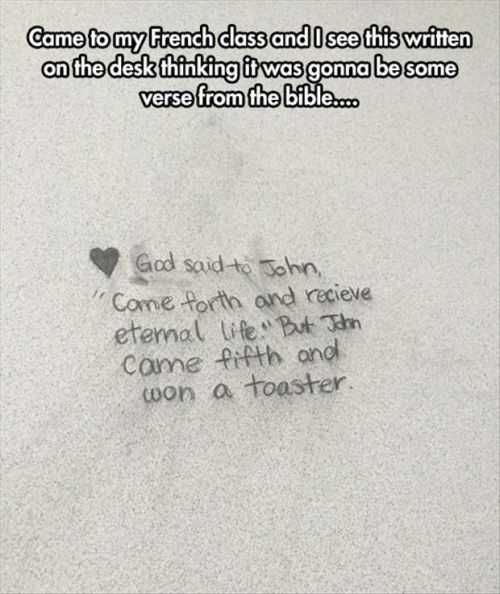 Came to my French class and I see this written
on the desk thinking it was gonna be some
verse from the bible....
God said to John,
"Come forth and recieve
eternal life." But John
came fifth and
won a toaster.